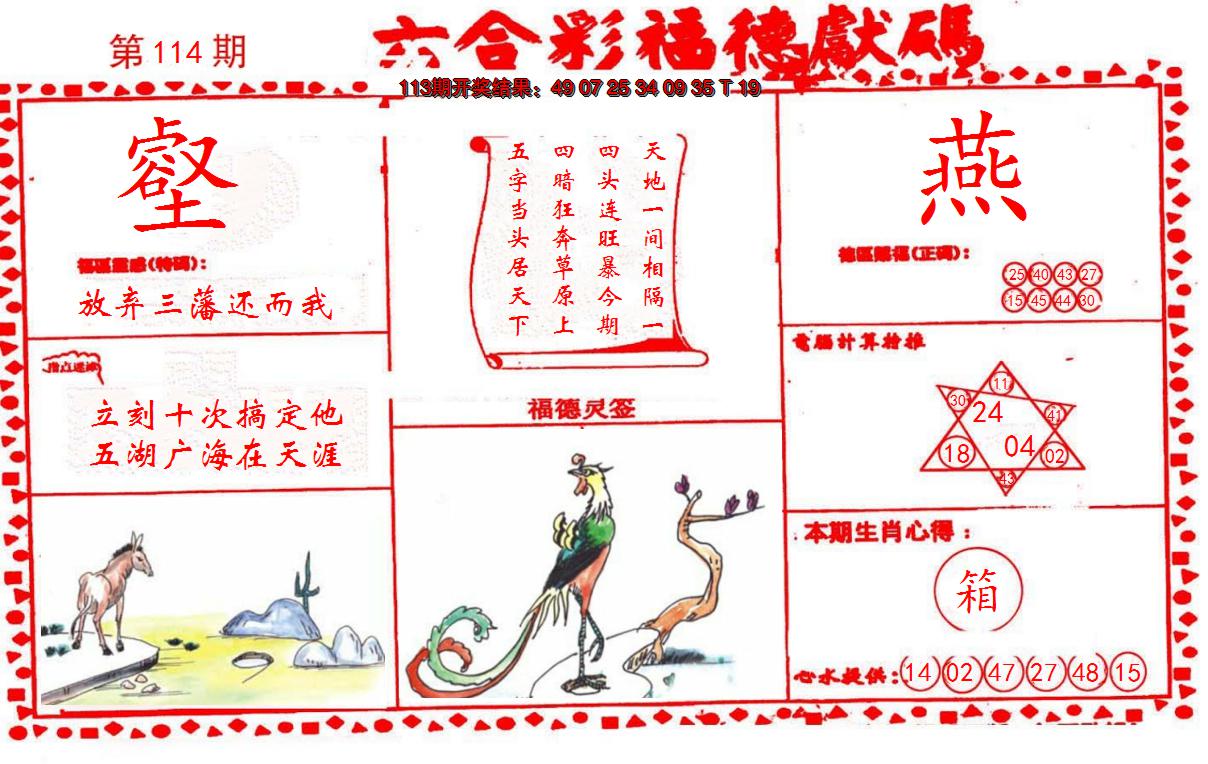 第 114 期
六合彩福德獻碼
113期开奖结果：49 07 25 34 09 35 T 19
壑
福區靈感(特碼)：
放弃三藩还而我
指点迷津
立刻十次搞定他
五湖广海在天涯
天地一间相隔一
四头连旺暴今期
四暗狂奔草原上
五字当头居天下
福德灵签
燕
德區賜福(正碼)：
25 40 43 27
15 45 44 30
電腦計算搶推
11
30 24 41
18 04 02
43
本期生肖心得：
箱
心水提供：14 02 47 27 48 15